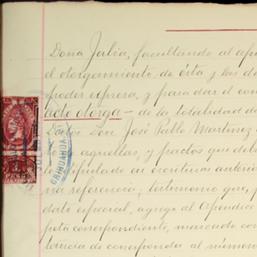 Doña Julia, facultando al apo
el otorgamiento de ésta y las d
poder expresa, y para dar el con
acto otorga — de la totalidad de
Don José Pablo Martínez
aquellas, y pactos que del
estipulado en escrituras anterio
na referencia, testimonio que, p
dato especial, agrego al Apéndice
peta correspondiente, marcado con
torcia de corresponda al número
CHIHUAHUA